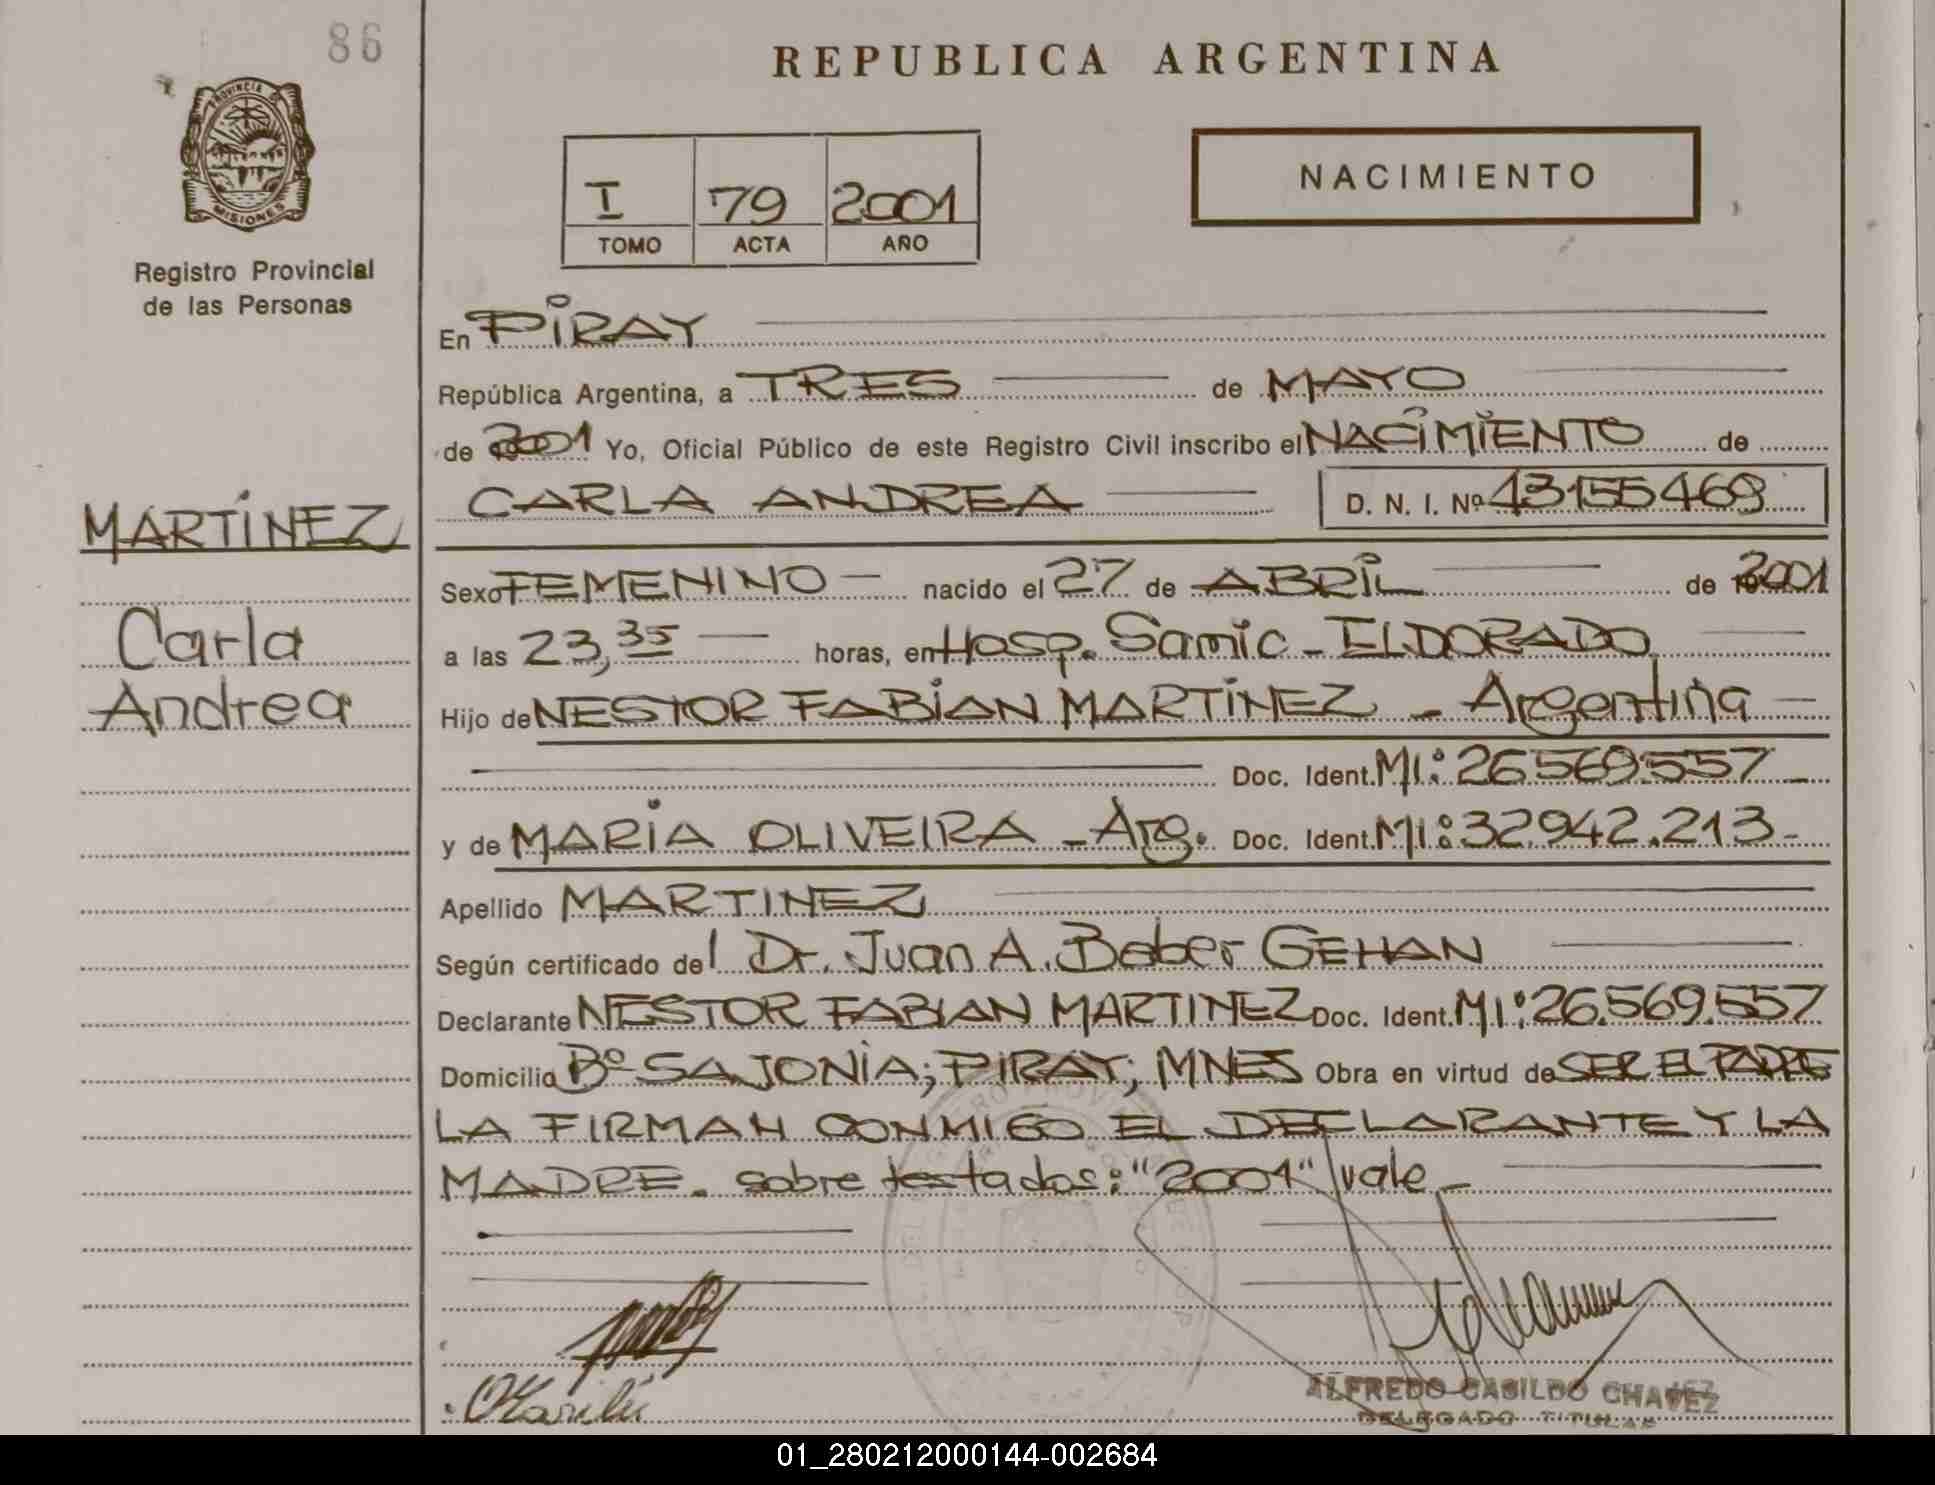 86
REPUBLICA ARGENTINA
PROVINCIA DE
MISIONES
Registro Provincial
de las Personas
I 79 2001
TOMO ACTA AÑO
NACIMIENTO
En PIRAY
República Argentina, a TRES de MAYO
de 2001 Yo, Oficial Público de este Registro Civil inscribo el NACIMIENTO de
CARLA ANDREA D. N. I. Nº 43155469
MARTÍNEZ
Carla
Andrea
Sexo FEMENINO nacido el 27 de ABRIL de 2001
a las 23,35 horas, en Hosp. Samic - ELDORADO
Hijo de NESTOR FABIAN MARTÍNEZ - Argentina
Doc. Ident. MI: 26.569.557
y de MARIA OLIVEIRA - Arg. Doc. Ident. MI: 32.942.213-
Apellido MARTINEZ
Según certificado del Dr. Juan A. Beber GEHAN
Declarante NESTOR FABIAN MARTINEZ Doc. Ident. MI: 26.569.557
Domicilio Bº SAJONIA; PIRAY; MNES Obra en virtud de SER EL PADRE
LA FIRMAN CONMIGO EL DECLARANTE Y LA
MADRE. sobre testados: "2001" vale -
ALFREDO CASILDO CHAVEZ
DELEGADO TITULAR
01_280212000144-002684